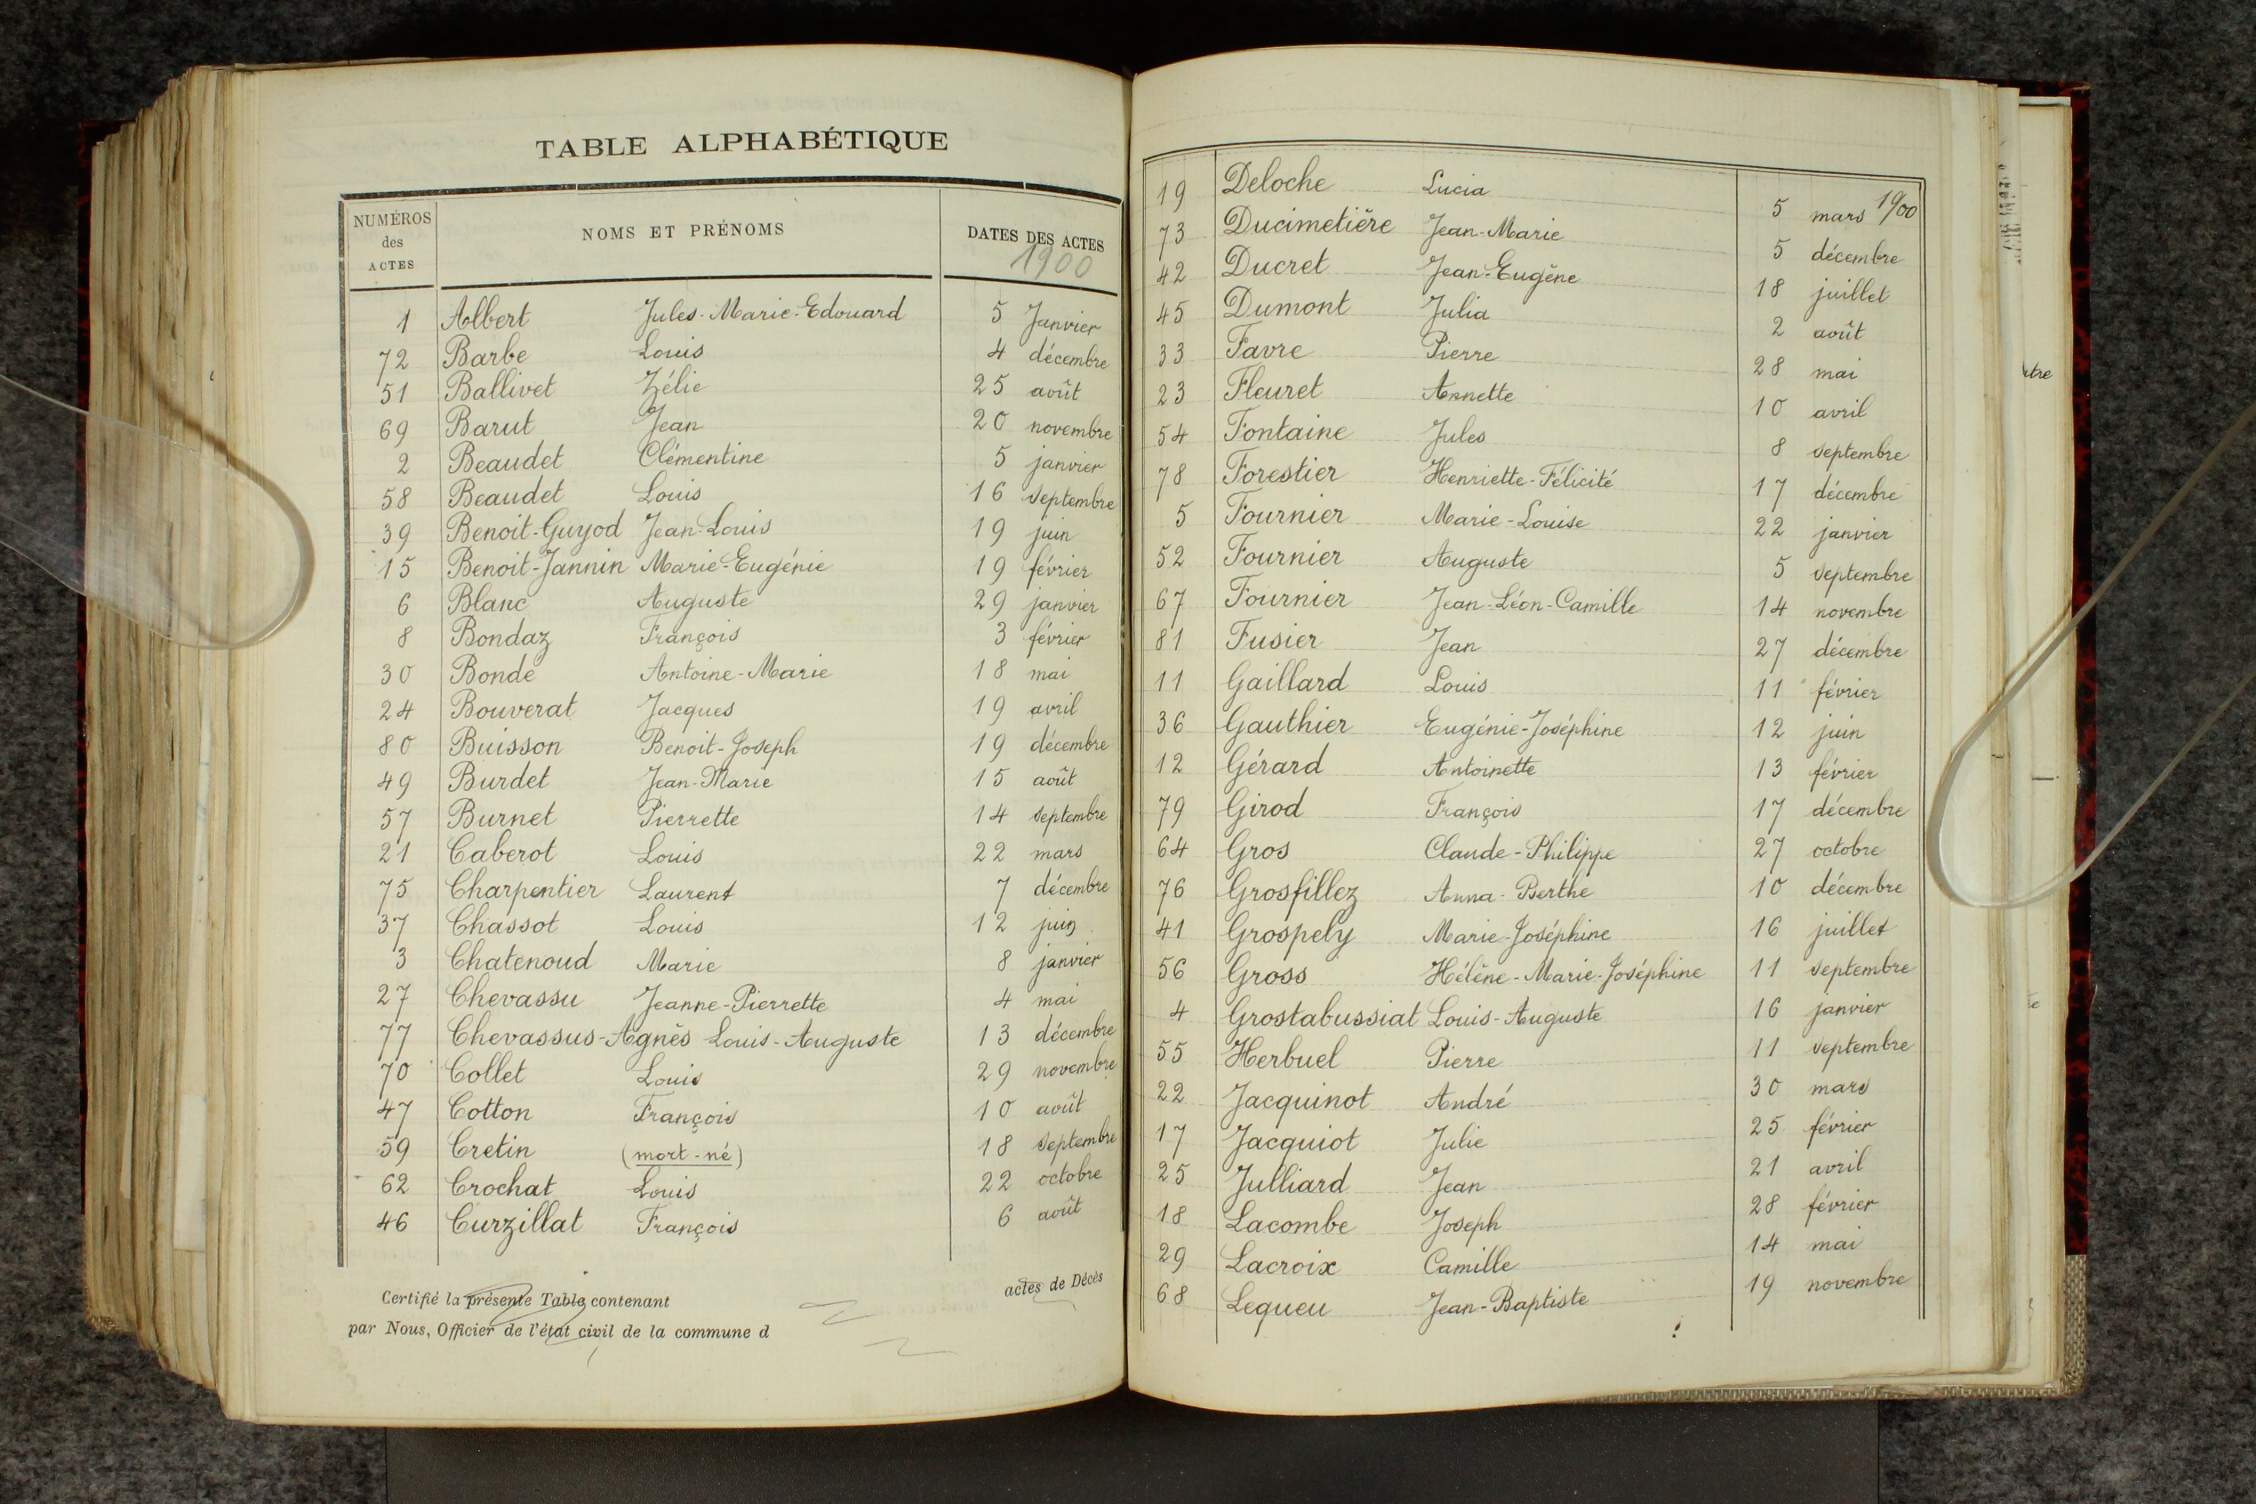 TABLE ALPHABÉTIQUE
NUMÉROS des ACTES NOMS ET PRÉNOMS DATES DES ACTES
1900
1 Albert Jules-Marie-Edouard 5 Janvier
72 Barbe Louis 4 décembre
51 Ballivet Zélie 25 août
69 Barut Jean 20 novembre
2 Beaudet Clémentine 5 janvier
58 Beaudet Louis 16 septembre
39 Benoit-Guyod Jean-Louis 19 juin
15 Benoit-Jannin Marie-Eugénie 19 février
6 Blanc Auguste 29 janvier
8 Bondaz François 3 février
30 Bonde Antoine-Marie 18 mai
24 Bouverat Jacques 19 avril
80 Buisson Benoit-Joseph 19 décembre
49 Burdet Jean-Marie 15 août
57 Burnet Pierrette 14 septembre
21 Caberot Louis 22 mars
75 Charpentier Laurent 7 décembre
37 Chassot Louis 12 juin
3 Chatenoud Marie 8 janvier
27 Chevassu Jeanne-Pierrette 4 mai
77 Chevassus-Agnès Louis-Auguste 13 décembre
70 Collet Louis 29 novembre
47 Cotton François 10 août
59 Cretin (mort-né) 18 septembre
62 Crochat Louis 22 octobre
46 Curzillat François 6 août
Certifié la présente Table contenant actes de Décès
par Nous, Officier de l'état civil de la commune d
19 Deloche Lucia 5 mars 1900
73 Ducimetière Jean-Marie 5 décembre
42 Ducret Jean-Eugène 18 juillet
45 Dumont Julia 2 août
33 Favre Pierre 28 mai
23 Fleuret Annette 10 avril
54 Fontaine Jules 8 septembre
78 Forestier Henriette-Félicité 17 décembre
5 Fournier Marie-Louise 22 janvier
52 Fournier Auguste 5 septembre
67 Fournier Jean-Léon-Camille 14 novembre
81 Fusier Jean 27 décembre
11 Gaillard Louis 11 février
36 Gauthier Eugénie-Joséphine 12 juin
12 Gérard Antoinette 13 février
79 Girod François 17 décembre
64 Gros Claude-Philippe 27 octobre
76 Grosfillez Anna-Berthe 10 décembre
41 Grospely Marie-Joséphine 16 juillet
56 Gross Hélène-Marie-Joséphine 11 septembre
4 Grostabussiat Louis-Auguste 16 janvier
55 Herbuel Pierre 11 septembre
22 Jacquinot André 30 mars
17 Jacquiot Julie 25 février
25 Julliard Jean 21 avril
18 Lacombe Joseph 28 février
29 Lacroix Camille 14 mai
68 Lequeu Jean-Baptiste 19 novembre